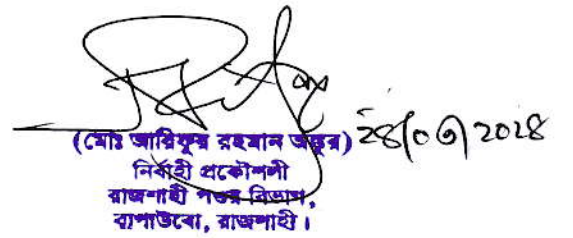 (মোঃ আরিফুর রহমান অঙ্কুর)
নির্বাহী প্রকৌশলী
রাজশাহী পওর বিভাগ,
বাপাউবো, রাজশাহী।